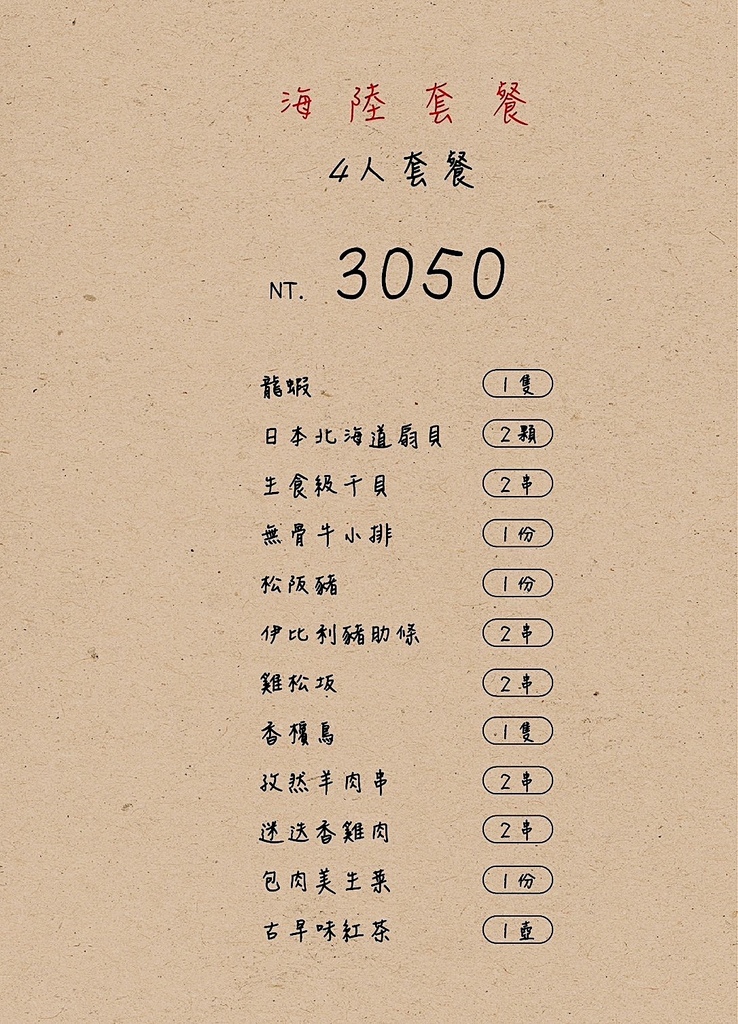 海陸套餐
4人套餐
NT. 3050
龍蝦 1隻
日本北海道扇貝 2顆
生食級干貝 2串
無骨牛小排 1份
松阪豬 1份
伊比利豬助條 2串
雞松坂 2串
香檳鳥 1隻
孜然羊肉串 2串
迷迭香雞肉 2串
包肉美生菜 1份
古早味紅茶 1壺